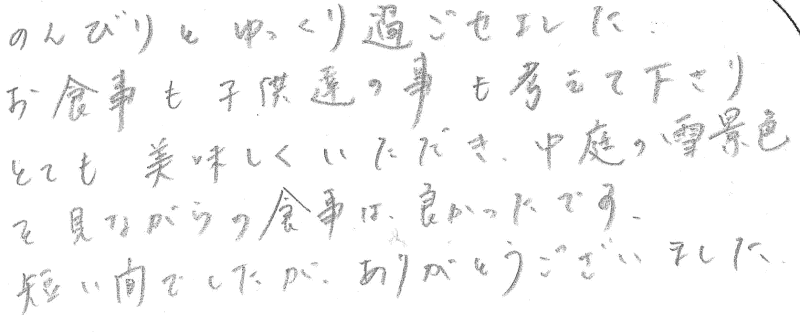 のんびりとゆっくり過ごせました.
お食事も子供達の事も考えて下さり
とても美味しくいただき、中庭の雪景色
を見ながらの食事は、良かったです。
短い間でしたが、ありがとうございました.